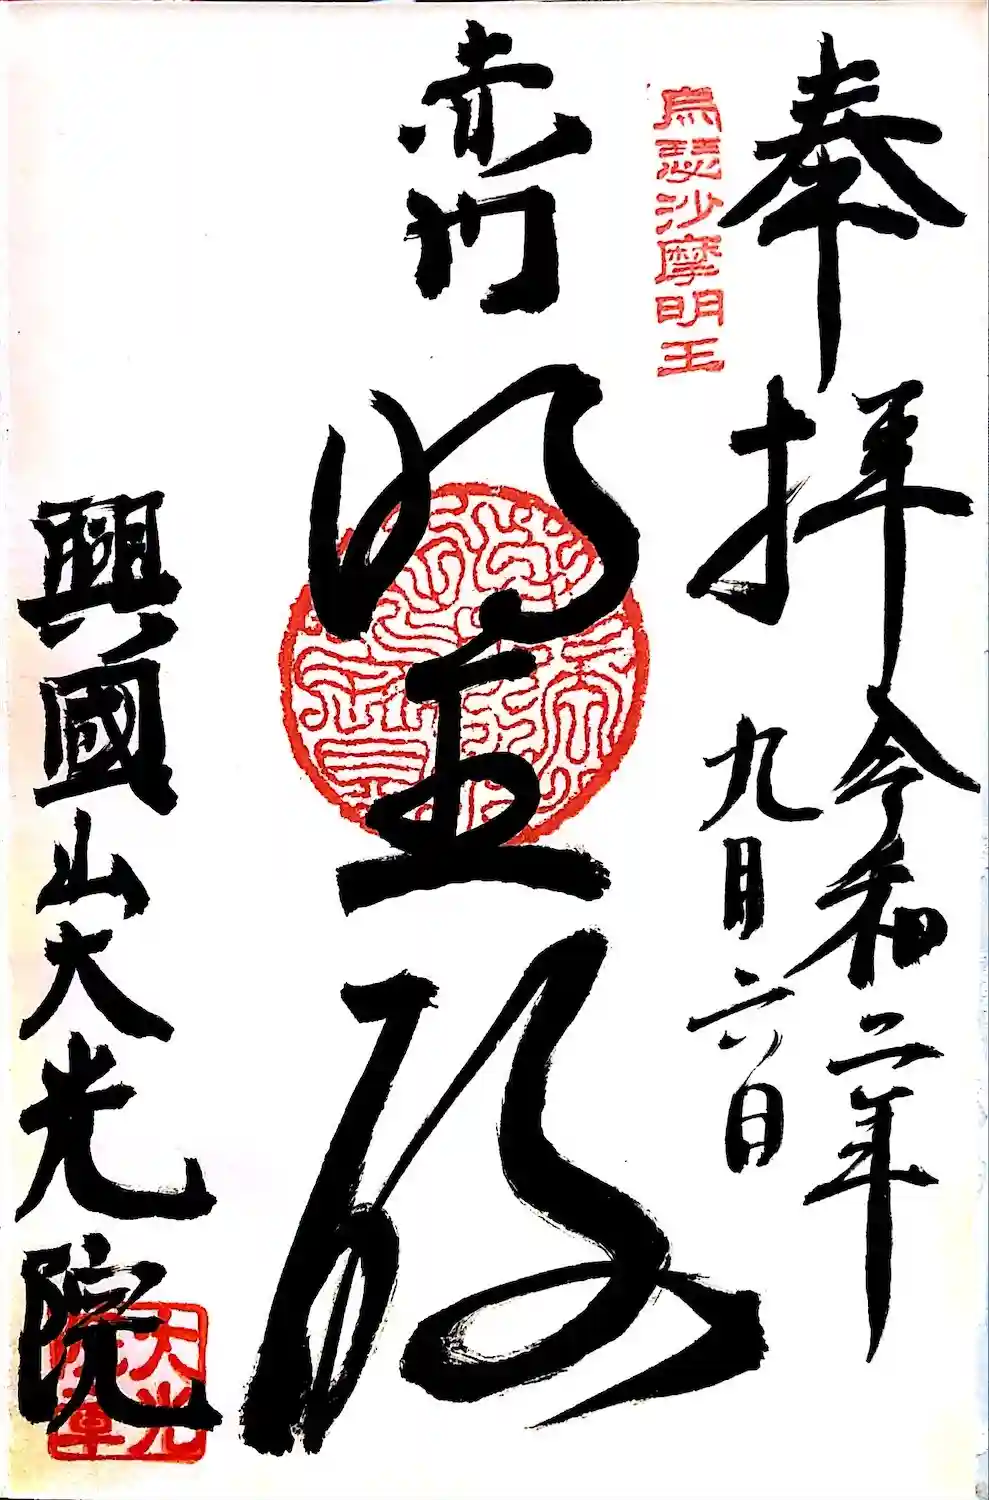 奉拝
令和二年
九月六日
烏瑟沙摩明王
赤門
明王殿
興國山大光院
大光
院章